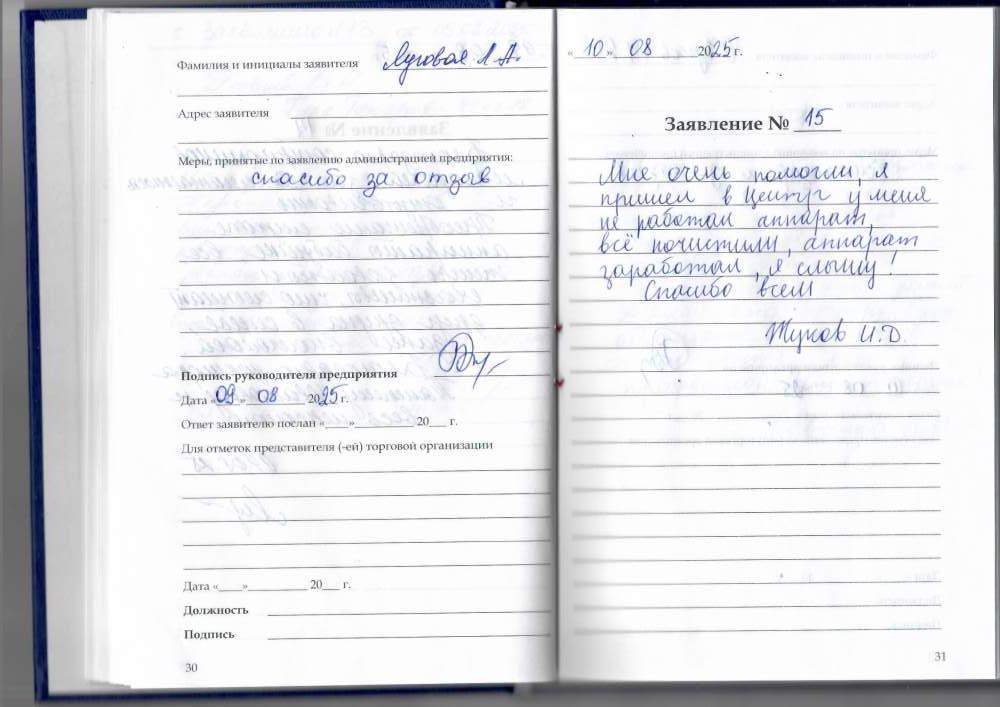 Фамилия и инициалы заявителя Луговая Л.А.
Адрес заявителя
Меры, принятые по заявлению администрацией предприятия:
спасибо за отзыв
Подпись руководителя предприятия
Дата «09» 08 2025 г.
Ответ заявителю послан «___» ________ 20___ г.
Для отметок представителя (-ей) торговой организации
Дата «____»__________ 20___ г.
Должность
Подпись
30
«10» 08 2025 г.
Заявление № 15
Мне очень помогли, я
пришел в Центр у меня
не работал аппарат,
всё почистили, аппарат
заработал, я слышу!
Спасибо всем
Жуков И.Д.
31